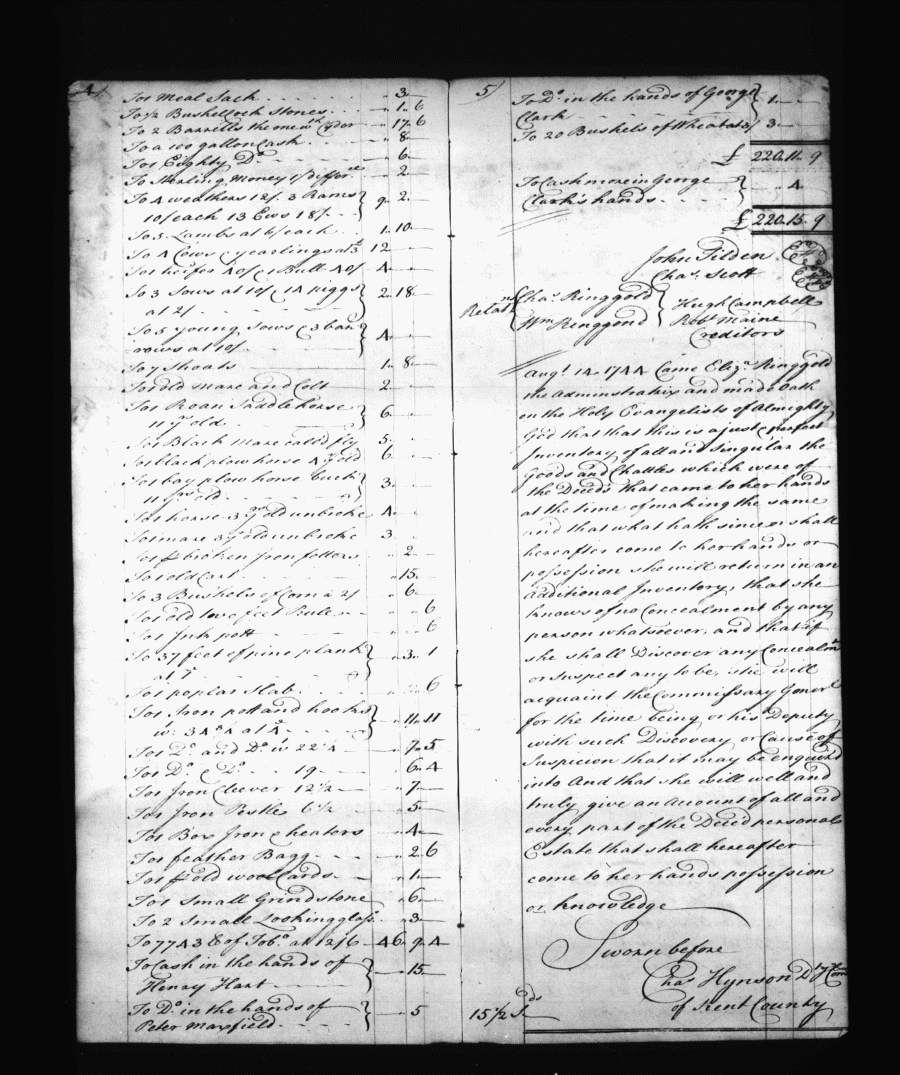 4/
To 1 Meal Sack - - - " 3 "
To 1/2 Bushel Cock Stones - - - " 1 " 6
To 2 Barrells the one wth Cyder " 17 " 6
To a 100 gallon Cask - - - " 8 "
To 1 Eighty Do - - - " 6 "
To Sterling Money 1/ differce " 2 "
To 4 weathers 12/. 3 Rams
10/ each 13 Ews 18/. - - } 9 " 2 "
To 5 Lambs at 6/ each - - 1 " 10 "
To 4 Cows & yearlings at £3 12 " "
To 1 heifer 40/ 1 Bull 40/ 4 " "
To 3 Sows at 10/ 14 piggs
at 2/ } 2 " 18 "
To 5 young Sows & 3 bar
rows at 10/. } 4 " "
To 7 Shoats 1 " 8 "
To 1 old Mare and Colt 2 " "
To 1 Roan Saddle horse
11 yrs old } 6 " "
To 1 Black Mare called fly 5 "
To 1 black plow horse 4 yr old 6 "
To 1 bay plow horse buck
11 yrs old - - - } 3 " "
To 1 horse 3 yrs old unbroke 4 "
To 1 mare 3 yr old unbroke 3
To 1 pr broken Iron fetters " 2 "
To 1 old Cart - - - " 15 "
To 3 Bushels of Corn a 2/ " 6 "
To 1 old two feet Rule " " 6
To 1 Ink pott - - - " " 6
To 37 feet of pine plank
at 1d } " 3 " 1
To 1 poplar Slab - - - " " 6
To 1 Iron pott and hooks
wt 34 at 4d } " 11 " 11
To 1 Do and Do wt 22 1/4 " 7 " 5
To 1 Do & Do - - 19 " 6 " 4
To 1 Iron Cleever 12 1/2 " 7 "
To 1 Iron Pestle 6 1/2 " 5 "
To 1 Box Iron & heators " 4 "
To 1 feather Bagg - - " 2 " 6
To 1 pr old wool Cards " 1 "
To 1 Small Grindstone " 6 "
To 2 Small Lookingglass " 3 "
To 7743 lb of Tobo at 12/6 46 " 9 " 4
To Cash in the hands of
Henry Hart } " 15 "
To Do in the hands of
Peter Maxfield } " " 5
5/
To Do in the hands of George
Clark } 1 " "
To 20 Bushels of Wheat at 3/ 3 " "
£ 220 " 11 " 9
To Cash more in George
Clark's hands } " 4 "
£ 220 " 15 " 9
John Tilden
Chas Scott
Relatns { Chas Ringgold
Wm Ringgond } Hugh Campbell
Robt Maine
Creditors
Augt 14 1744 Came Elizn Ringgold
the Adminstratix and made Oath
on the Holy Evangelists of Almighty
God that that this is a just & perfect
Inventory of all and Singular the
Goods and Chattles which were of
the Deceds that came to her hands
at the time of making the same
and that what hath since or shall
hereafter come to her hands or
possession she will return in an
additional Inventory, that she
knows of no Concealment by any
person whatsoever, and that if
she shall Discover any Concealmt
or suspect any to be, she will
acquaint the Commissary Generl
for the time being or his Deputy
with such Discovery or Cause of
Suspicion that it may be enquired
into And that she will well and
truly give an account of all and
every part of the Deced personal
Estate that shall hereafter
come to her hands possession
or knowledge
Sworn before
Chas Hynson Dty Com
of Kent County
15 1/2 Sds